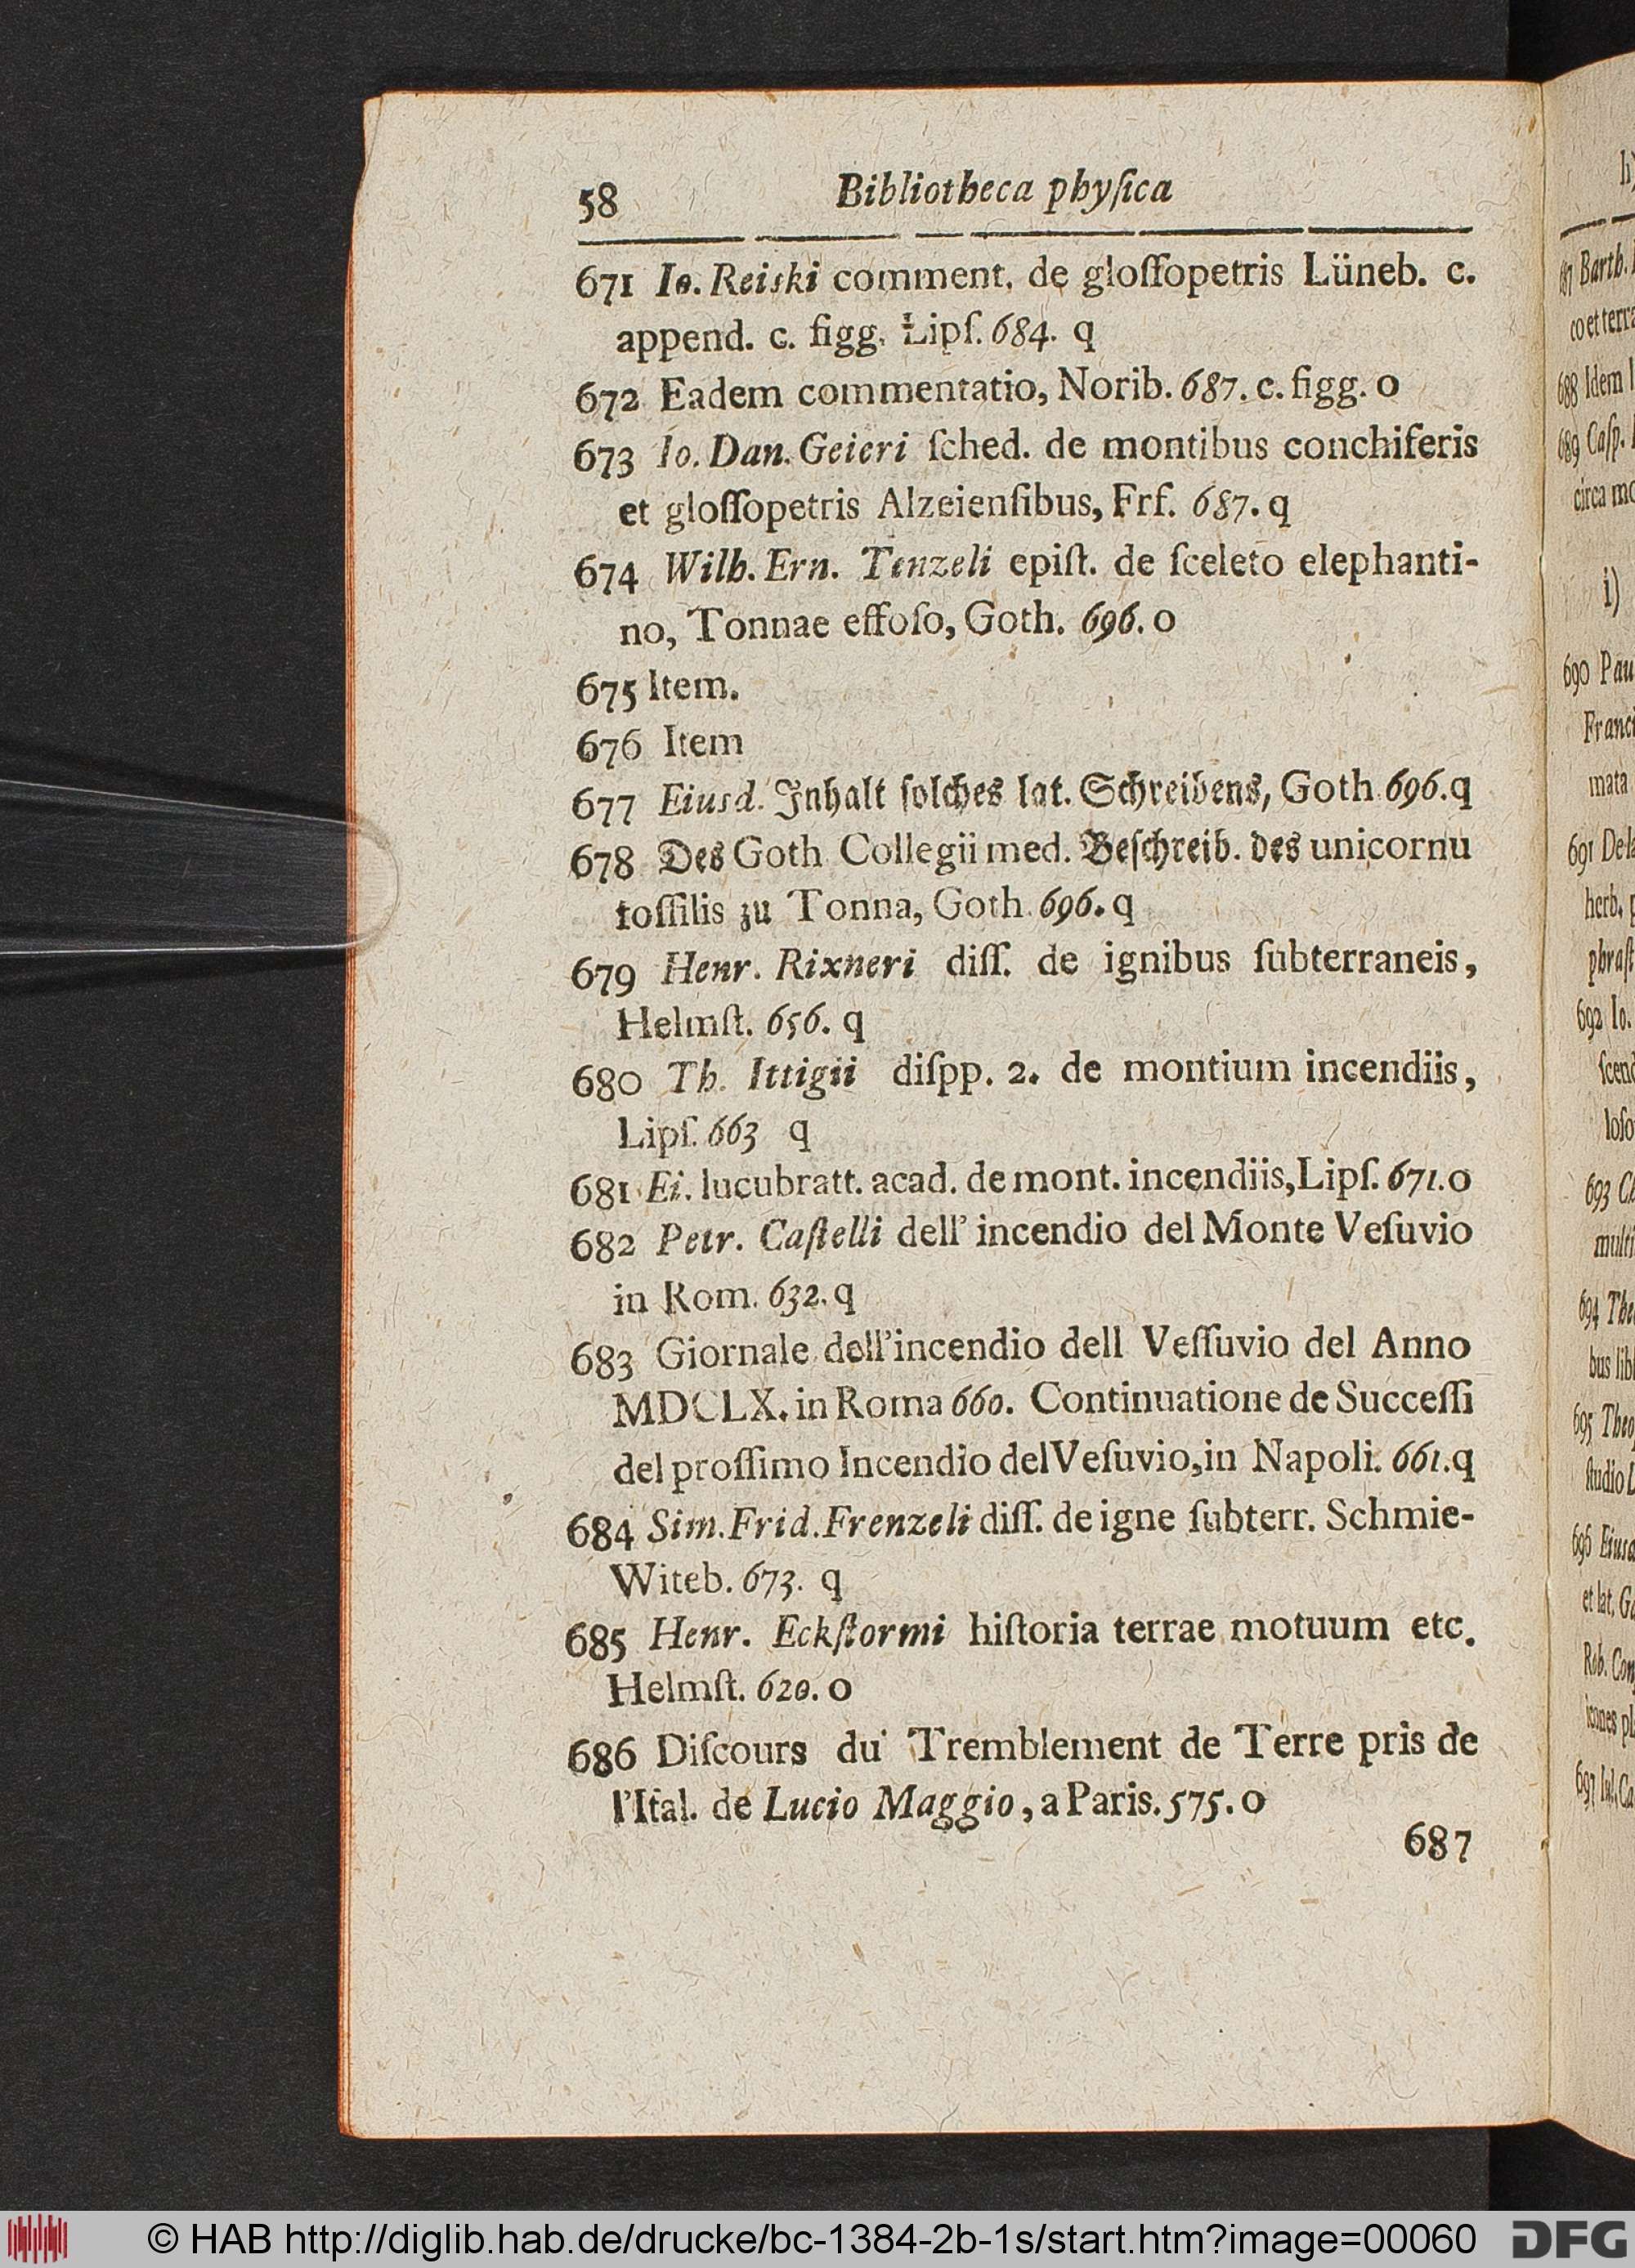 58 Bibliotheca phyſica
671 Io. Reiski comment. de gloſſopetris Lüneb. c.
append. c. figg. Lipſ. 684. q
672 Eadem commentatio, Norib. 687. c. figg. o
673 Io. Dan. Geieri ſched. de montibus conchiferis
et gloſſopetris Alzeienſibus, Frf. 687. q
674 Wilh. Ern. Tenzeli epiſt. de ſceleto elephanti-
no, Tonnae effoſo, Goth. 696. o
675 Item.
676 Item
677 Eiusd. Inhalt ſolches lat. Schreibens, Goth 696. q
678 Des Goth Collegii med. Beſchreib. des unicornu
foſſilis zu Tonna, Goth. 696. q
679 Henr. Rixneri diſſ. de ignibus ſubterraneis,
Helmſt. 656. q
680 Th. Ittigii diſpp. 2. de montium incendiis,
Lipſ. 663 q
681 Ei. lucubratt. acad. de mont. incendiis, Lipſ. 671. o
682 Petr. Caſtelli dell' incendio del Monte Veſuvio
in Rom. 632. q
683 Giornale dell'incendio dell Veſſuvio del Anno
MDCLX. in Roma 660. Continuatione de Succeſſi
del proſſimo Incendio del Veſuvio, in Napoli. 661. q
684 Sim. Frid. Frenzeli diſſ. de igne ſubterr. Schmie-
Witeb. 673. q
685 Henr. Eckſtormi hiſtoria terrae motuum etc.
Helmſt. 620. o
686 Diſcours du Tremblement de Terre pris de
l'Ital. de Lucio Maggio, a Paris. 575. o
687
h)
687 Barth.
co et terra
688 Idem
689 Caſp.
circa
i)
690
mata
691
herb.
692 Io.
693
multi
694
bus
695
ſtudio
696
et lat.
Rob.
icones
697
© HAB http://diglib.hab.de/drucke/bc-1384-2b-1s/start.htm?image=00060 DFG